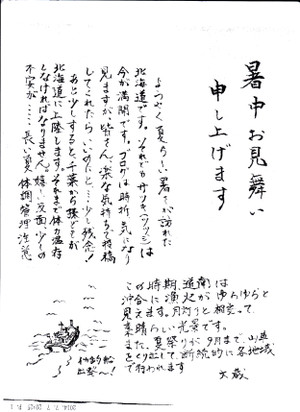 暑中お見舞い
申し上げます
ようやく夏らしい暑さが訪れた
北海道です。それでもサツキ(ツツジ)は
今が満開です。ブログは時折、気になり
見ますが、皆さん、楽な気持ちで投稿
してくれたらいいのだと…少し残念!
あと少しすると、千葉から孫どもが
北海道に上陸します。それまで体力温存
しなければなりません。嬉しい反面少しの
不安が……長い夏体調管理注意
この時期、道南は
沖に漁火がゆらゆらと
見えます。月灯りと相交って、
素晴らしい光景です。
また、夏祭りが9月まで、
をくり返して断続的に各地域
で行われます
大蔵
出発〜!